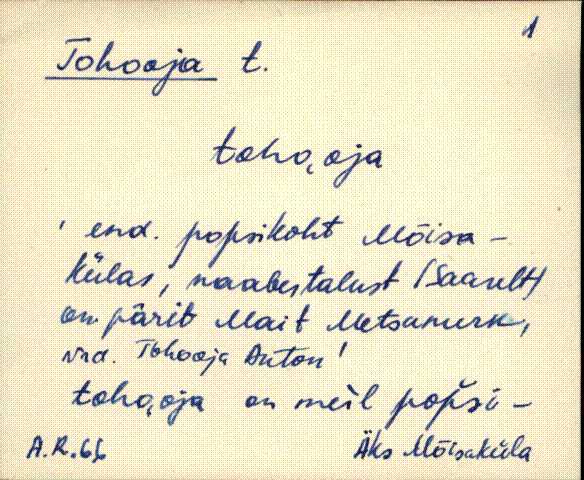 1
Tohooja t.
toho̬oja
' end. popsikoht Mõisa-
külas, naabertalust (Saarelt)
on pärit Mait Metsanurk,
vrd. Tohooja Anton'
toho̬oja on meil popsi-
A.R.66 Äks Mõisaküla